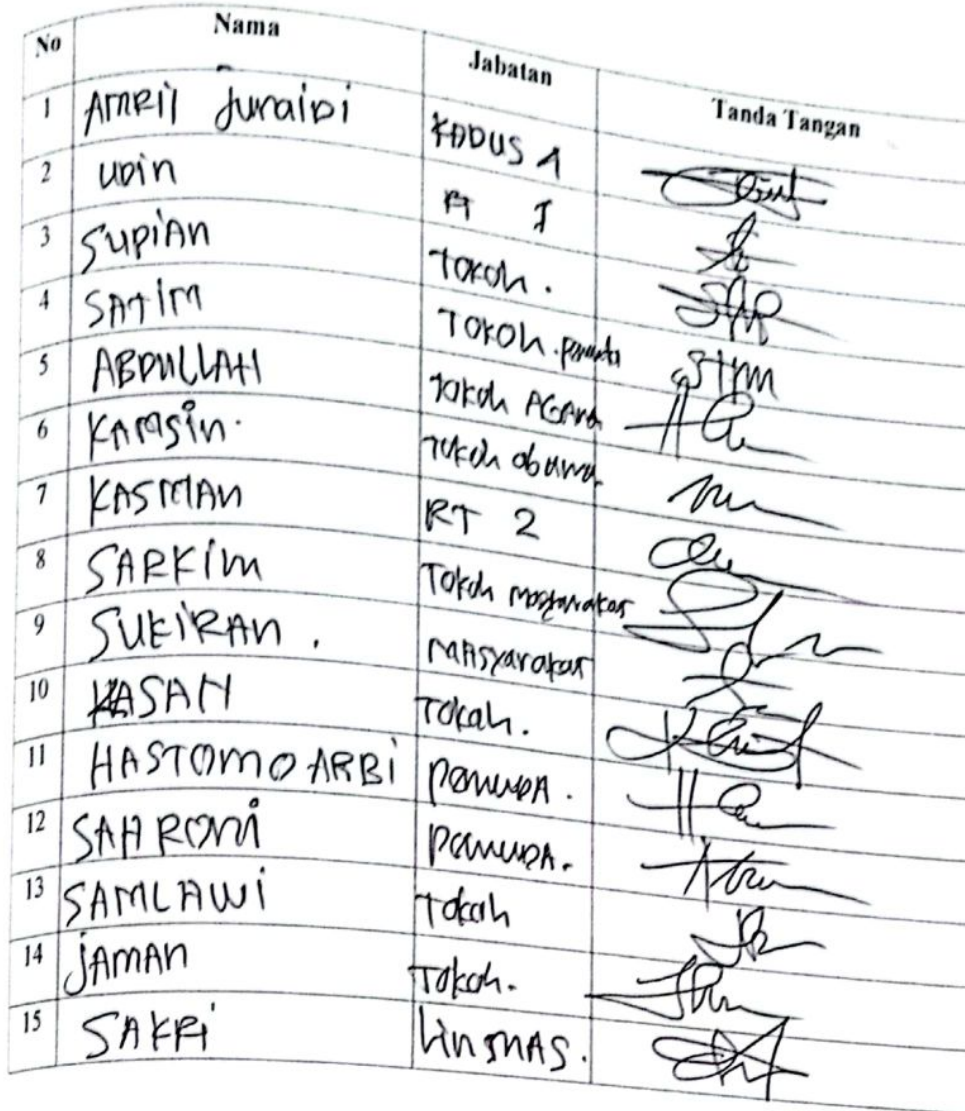 No Nama Jabatan Tanda Tangan
1 AMRIl Junaidi KADUS 1
2 UDin RT I
3 SUPIAn TOKOh.
4 SATIM TOKOh. pemuda
5 ABDULLAH TOKOh AGAMA
6 KAMSin. TOKOh
7 KASMAN RT 2
8 SARKIM TOKOh masyarakat
9 SUKIRAN. MASyarakat
10 KASAH TOKOh.
11 HASTOMO ARBI PEMUDA.
12 SAHRONI PEMUDA.
13 SAMLAWI TOKOh
14 JAMAN TOKOh.
15 SAKRI LinmAS.